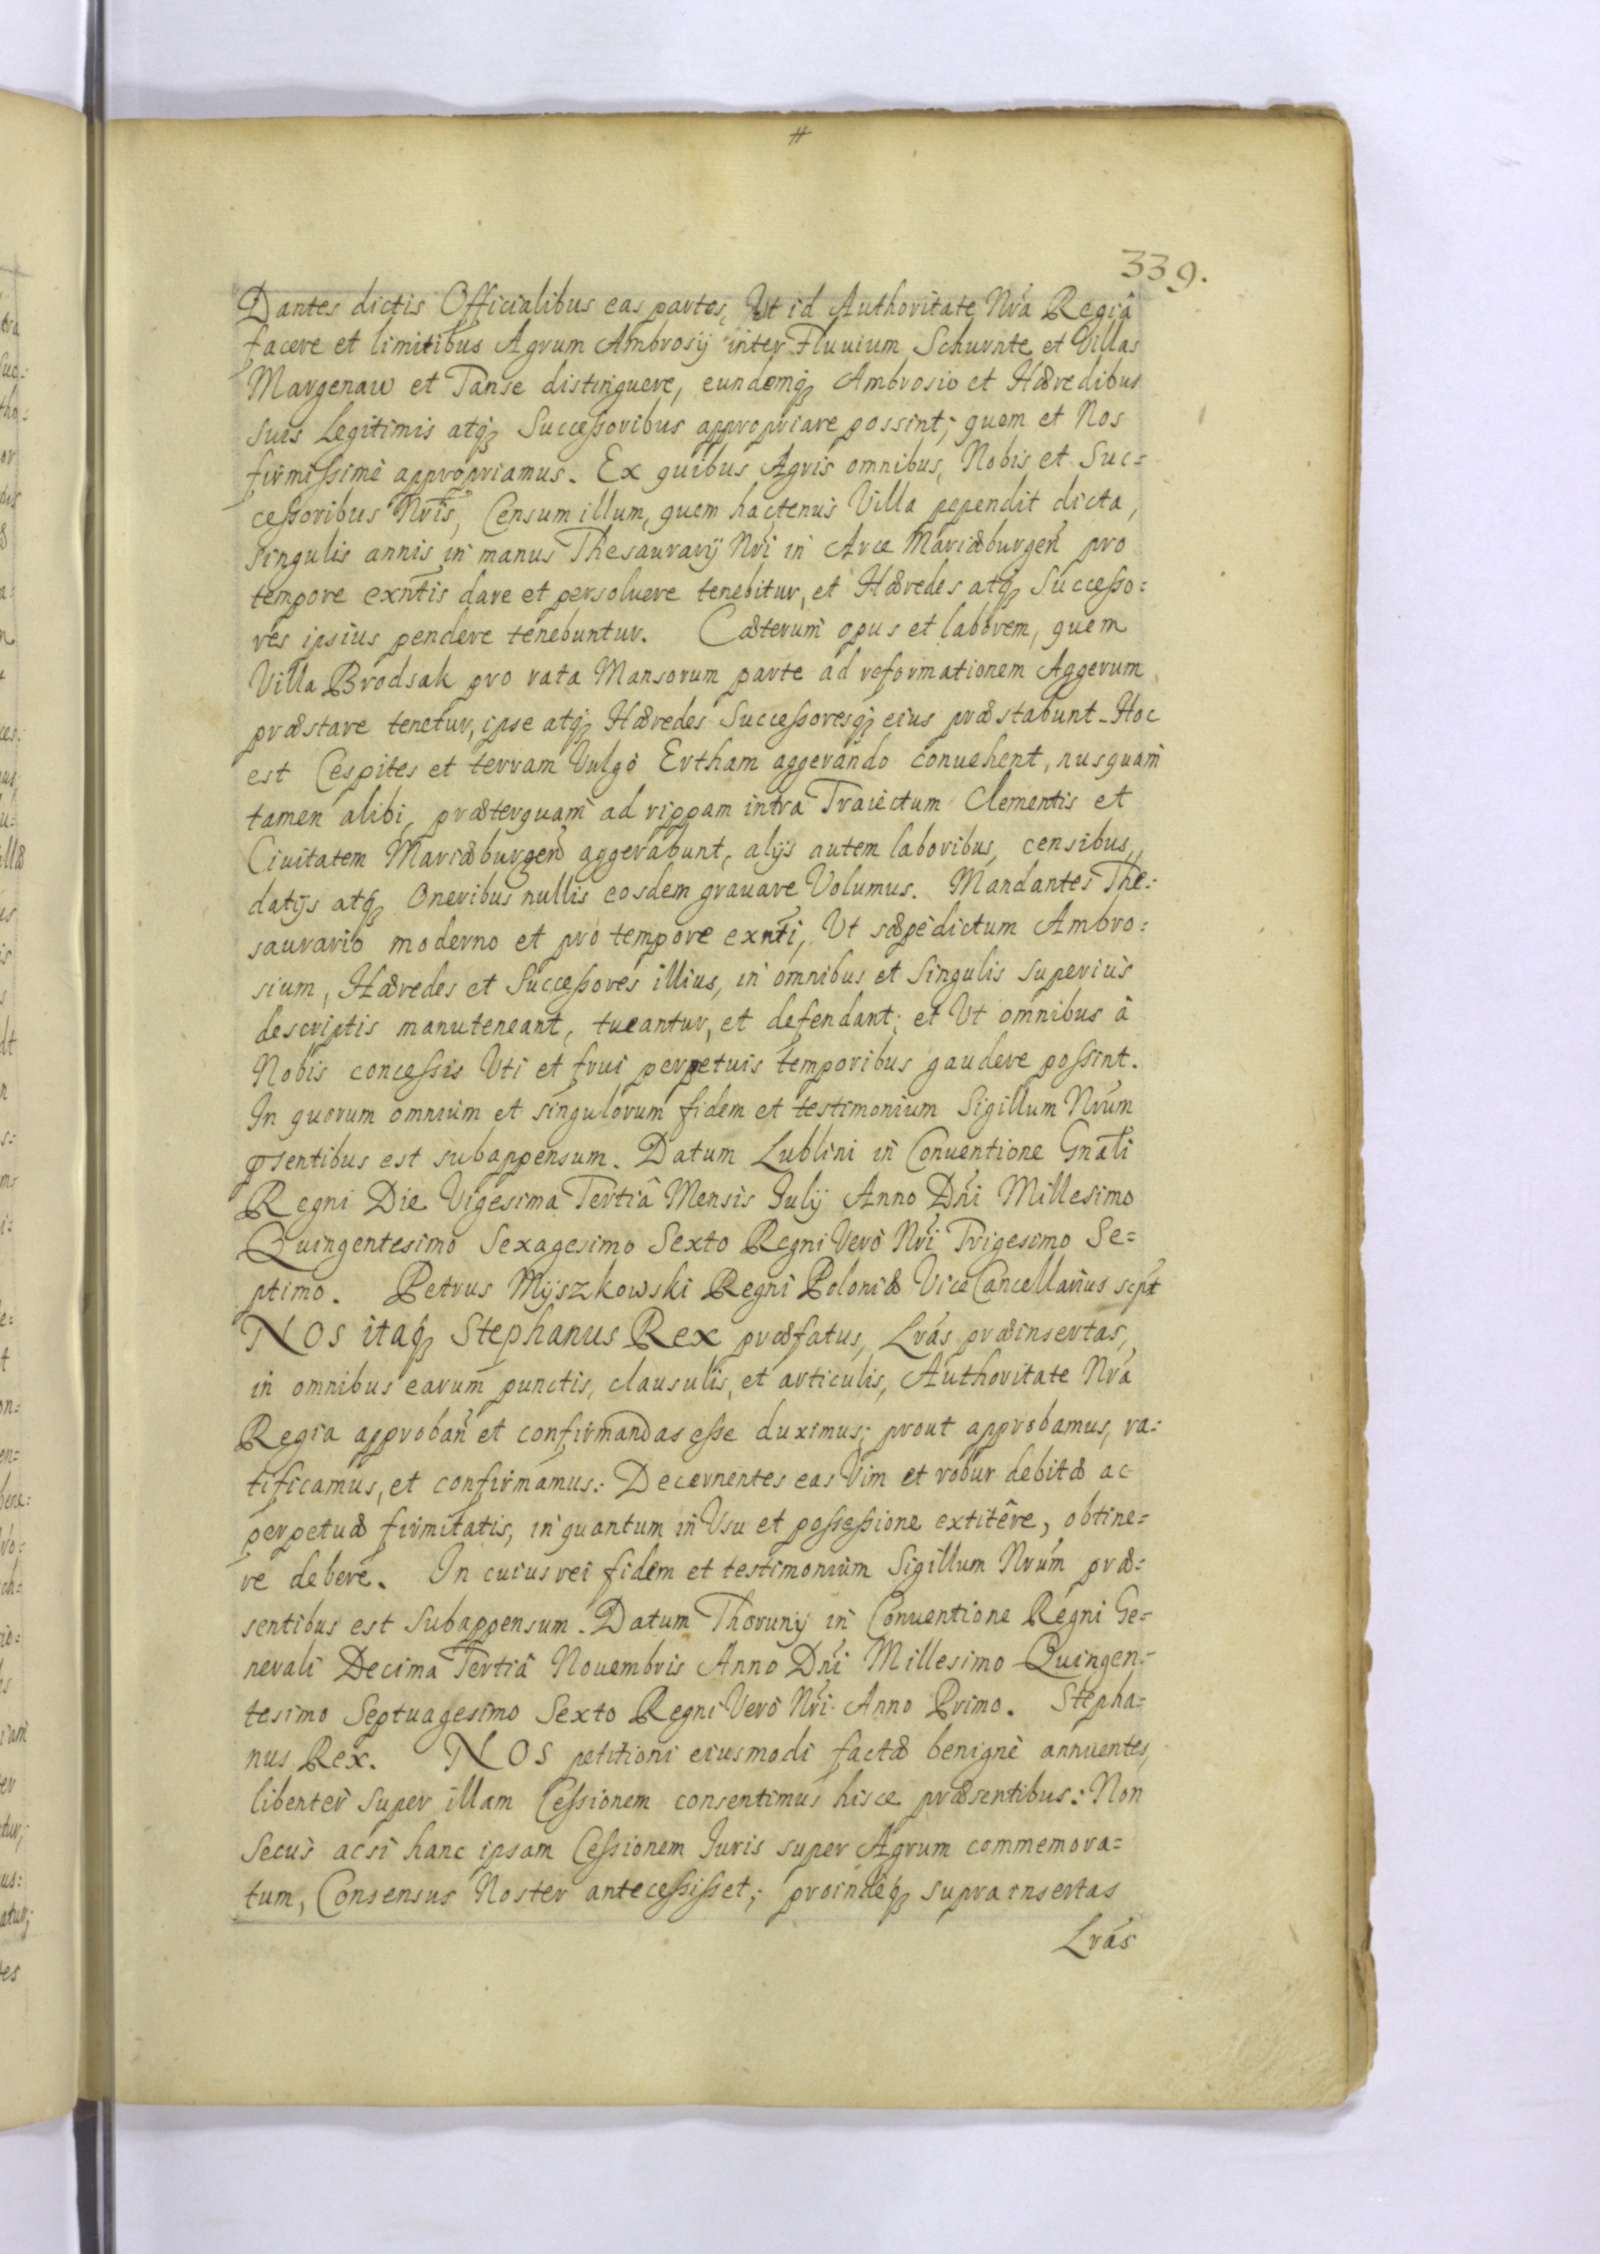 #
339.
Dantes dictis Officialibus eas partes, Vt id Authoritate Nrá Regiâ
facere et limitibus Agrum Ambrosij inter Fluuium Schurnte et Villas
Margenaw et Tanse distinguere, eundemq̃ Ambrosio et Hæredibus
suis Legitimis atq̃ Successoribus appropriare possint; quem et Nos
firmissimè appropriamus. Ex quibus Agris omnibus, Nobis et Suc=
cessoribus Nrĩs, Censum illum, quem hactenus Villa pependit dicta,
singulis annis in manus Thesaurarij Nrĩ in Arce Mariæburgeñ pro
tempore exñtis dare et persoluere tenebitur, et Hæredes atq̃ Successo:
res ipsius pendere tenebuntur. Cæterum opus et laborem, quem
Villa Brodsak pro rata Mansorum parte ad reformationem Aggerum
præstare tenetur, ipse atq̃ Hæredes Successoresq̃ eius præstabunt. Hoc
est Cespites et terram Vulgò Ertham aggerando conuehent, nusquam
tamen alibi, præterquam ad rippam intra Traiectum Clementis et
Ciuitatem Mariæburgeñ aggerabunt, alijs autem laboribus, censibus,
datijs atq̃ Oneribus nullis eosdem grauare Volumus. Mandantes The:
saurario moderno et pro tempore exñti, Vt sæpèdictum Ambro:
sium, Hæredes et Successores illius, in omnibus et singulis superiùs
descriptis manuteneant, tueantur, et defendant; et Vt omnibus â
Nobis concessis Vti et frui perpetuis temporibus gaudere possint.
In quorum omnium et singulorum fidem et testimonium Sigillum Nrũm
pr̃sentibus est subappensum. Datum Lublini in Conuentione Gnãli
Regni Die Vigesima Tertiâ Mensis Iulij Anno Dñi Millesimo
Quingentesimo Sexagesimo Sexto Regni Verò Nrĩ Trigesimo Se=
ptimo. Petrus Mÿszkowski Regni Poloniæ ViceCancellarius scp̃t
NOS itaq̃ Stephanus Rex præfatus, Lrás præinsertas,
in omnibus earum punctis, clausulis, et articulis, Authoritate Nrá
Regia approbañ et confirmandas esse duximus; prout approbamus, ra:
tificamus, et confirmamus: Decernentes eas Vim et robur debitæ ac
perpetuæ firmitatis, in quantum in Vsu et possessione extitêre, obtine=
re debere. In cuius rei fidem et testimonium Sigillum Nrũm præ=
sentibus est Subappensum. Datum Thorunij in Conuentione Regni Ge=
nerali Decima Tertiâ Nouembris Anno Dñi Millesimo Quingen=
tesimo Septuagesimo Sexto Regni Verò Nrĩ Anno Primo. Stepha=
nus Rex. NOS petitioni eiusmodi factæ benignè annuentes,
libenter super illam Cessionem consentimus hisce præsentibus: Non
secus acsi hanc ipsam Cessionem Iuris super Agrum commemora=
tum, Consensus Noster antecessisset; proindeq̃ supra insertas
Lrás